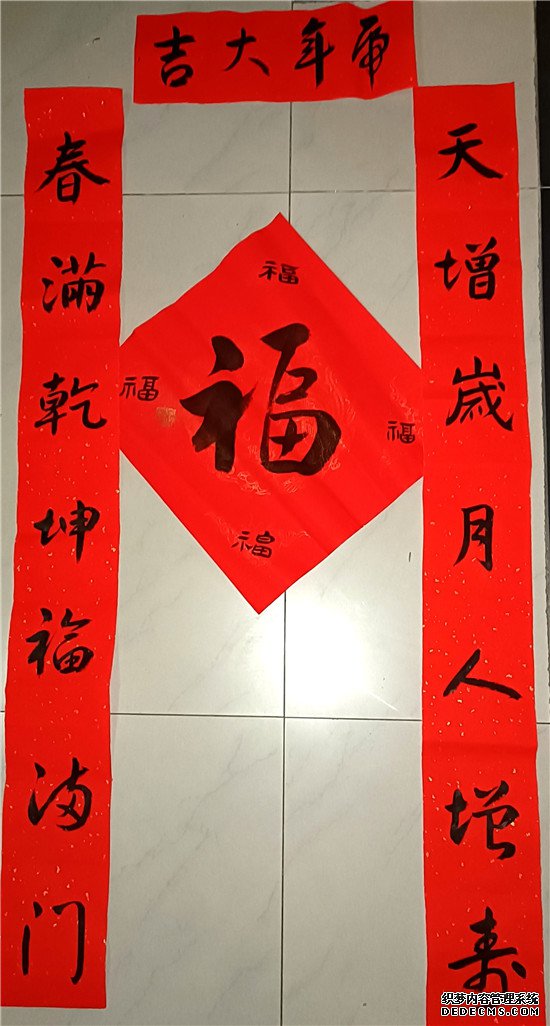 虎年大吉
天增嵗月人增寿
春滿乾坤福满门
福
福
福
福
福
织梦内容管理系统
DEDECMS.COM